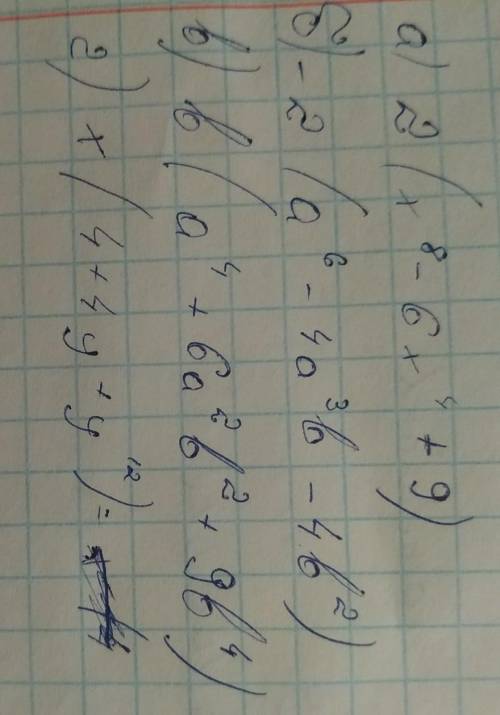 а) 2(x⁸ - 6x⁴ + 9)
б) -2(a⁶ - 4a³b - 4b²)
в) b(a⁴ + 6a²b² + 9b⁴)
г) x(4 + 4y + y²) =